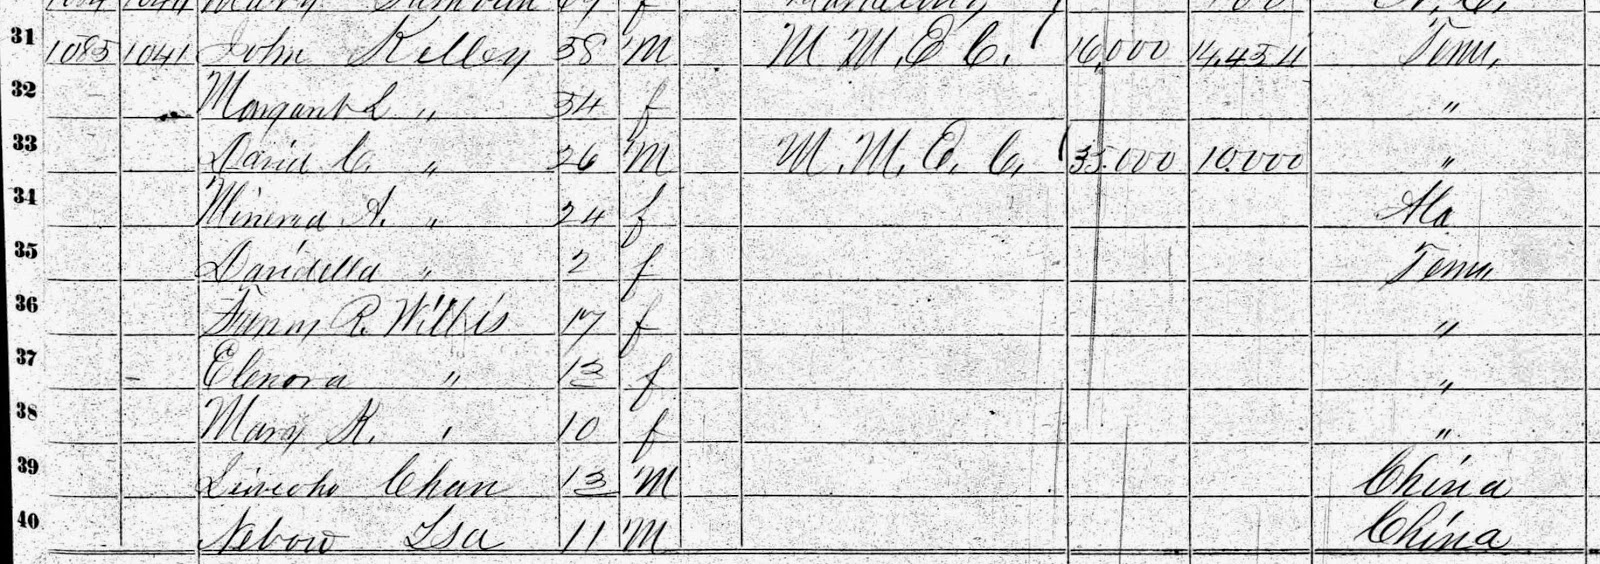 Mary
31 1085 1041 John Kelley 38 M M. M. E. C. 16,000 14,454 Tenn.
32 Margaret L " 34 f "
33 David C. " 26 M M. M. E. C. 35.000 10.000 "
34 Minerva A. " 24 f Ala
35 Davidella " 2 f Tenn.
36 R. Willis 17 f "
37 Elenora " 13 f "
38 Mary K. " 10 f "
39 Chan 13 M China
40 Nebow Tsa 11 M China